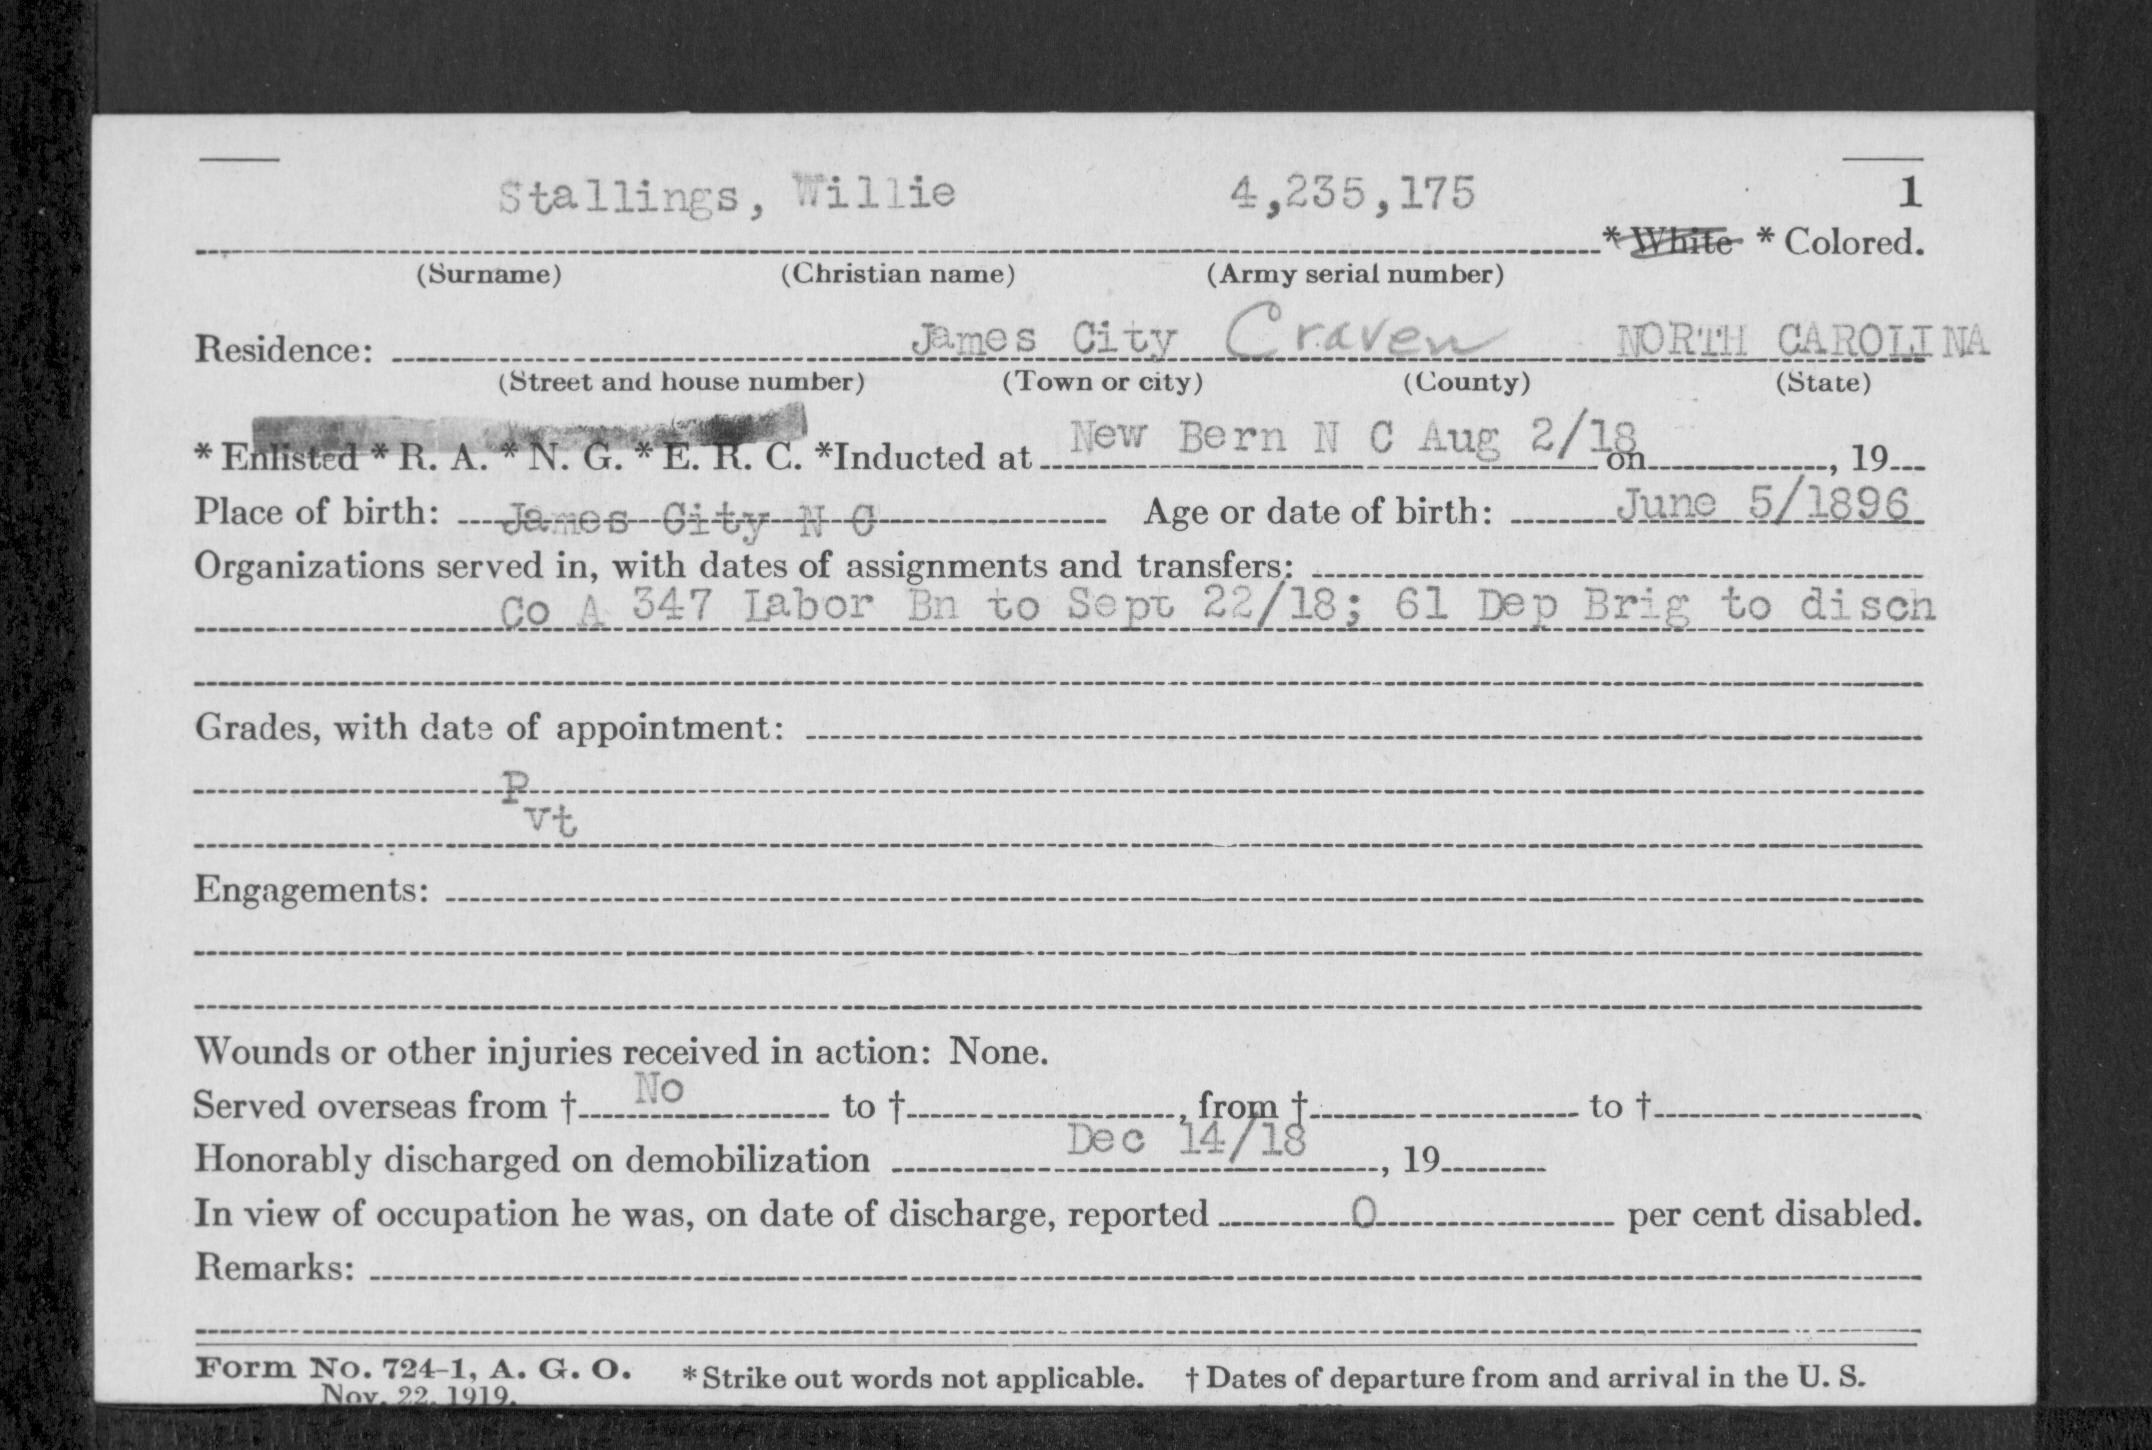 Stallings, Willie 4,235,175 1
* White * Colored.
(Surname) (Christian name) (Army serial number)
Residence: James City Craven NORTH CAROLINA
(Street and house number) (Town or city) (County) (State)
* Enlisted * R. A. * N. G. * E. R. C. *Inducted at New Bern N C Aug 2/18 on , 19
Place of birth: James City N C Age or date of birth: June 5/1896
Organizations served in, with dates of assignments and transfers:
Co A 347 Labor Bn to Sept 22/18; 61 Dep Brig to disch
Grades, with date of appointment:
Pvt
Engagements:
Wounds or other injuries received in action: None.
Served overseas from † No to † , from † to †
Honorably discharged on demobilization Dec 14/18 , 19
In view of occupation he was, on date of discharge, reported 0 per cent disabled.
Remarks:
Form No. 724-1, A. G. O. * Strike out words not applicable. † Dates of departure from and arrival in the U. S.
Nov. 22, 1919.